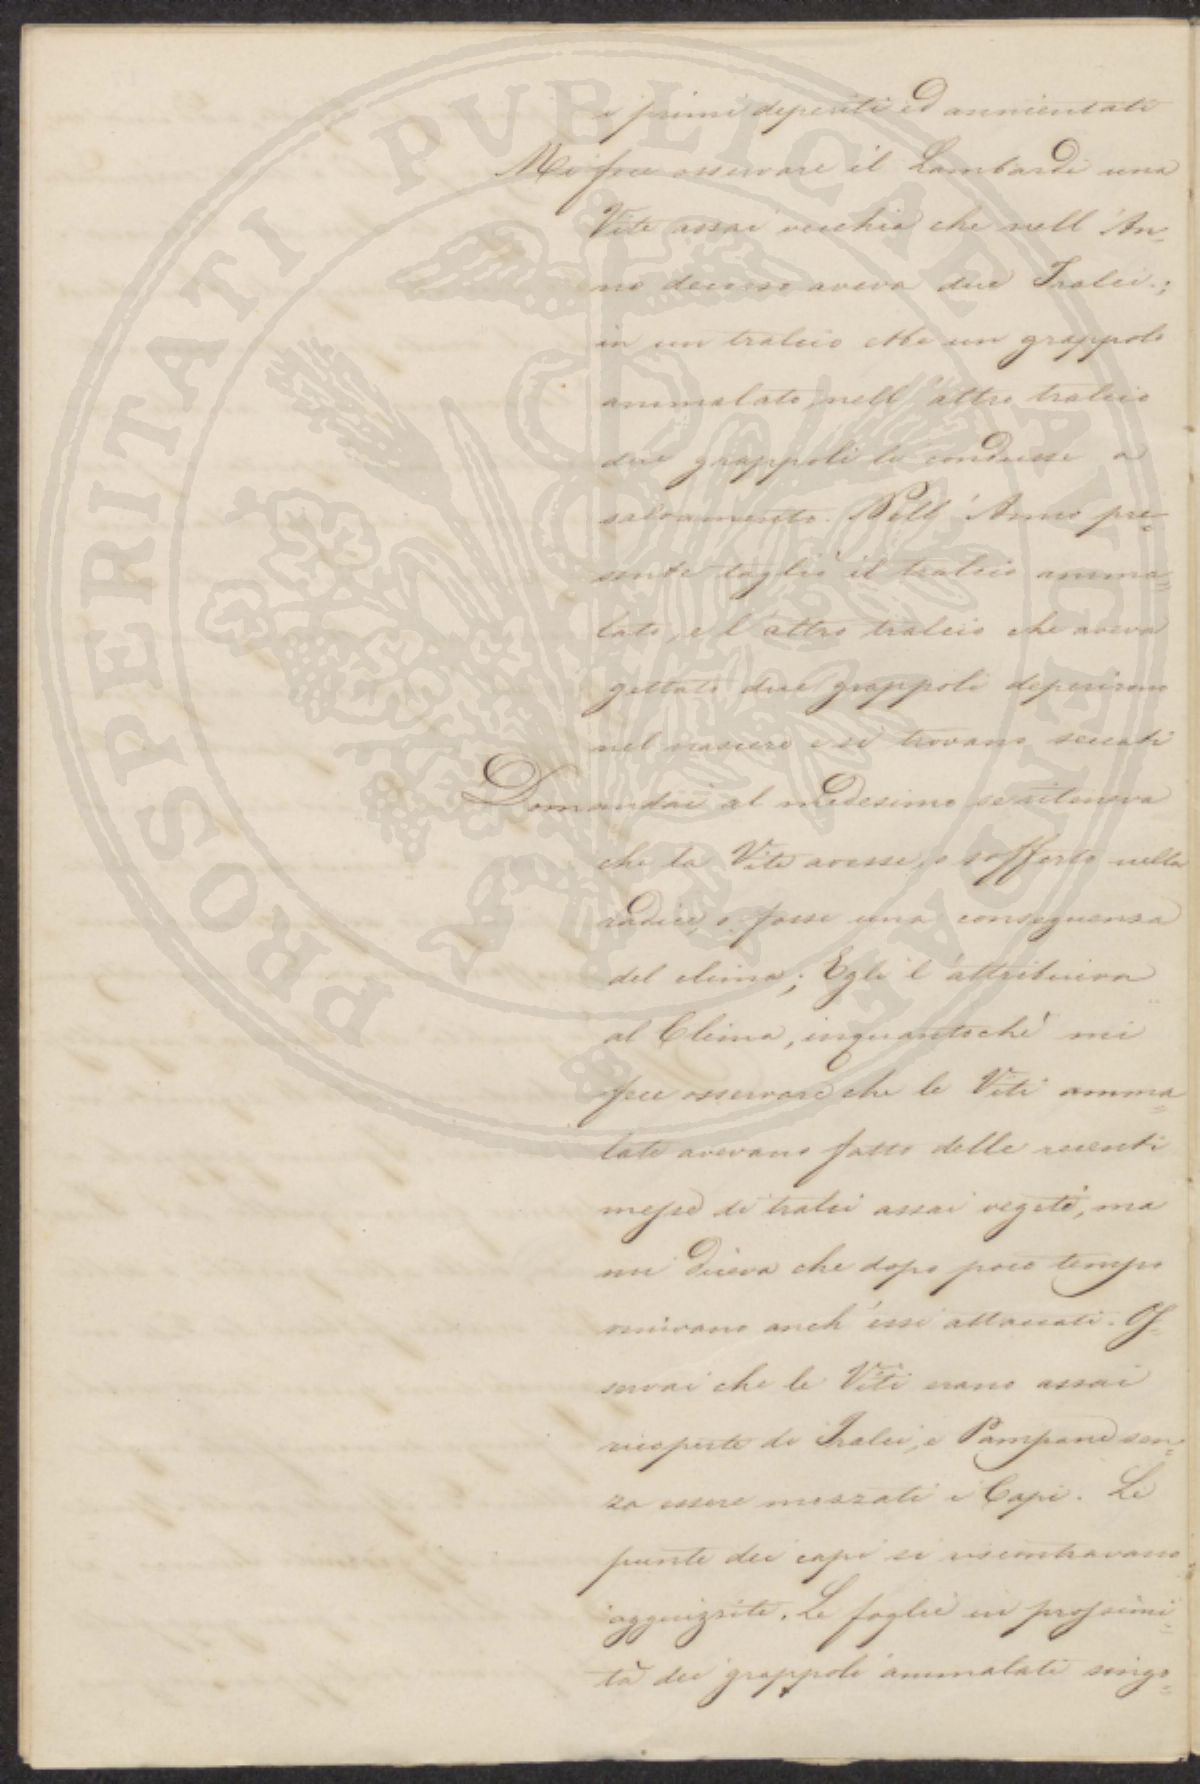 i primi deperiti ed annientati
Mi fece osservare il Lambardi una
Vite assai vecchia che nell'An=
no decorso aveva due Tralci.;
in un tralcio ebbe un grappolo
ammalato, nell'altro tralcio
due grappoli li condusse a
salvamento. Nell'Anno pre=
sente tagliò il tralcio amma=
lato, e l'altro tralcio che aveva
gettato due grappoli deperirono
nel nascere e si trovano seccati
Domandai al medesimo se riteneva
che la Vite avesse, o sofferto nella
radice, o fosse una conseguenza
del clima; Egli l'attribuiva
al Clima, inquantochè mi
fece osservare che le Viti amma=
late avevano fatto delle recenti
messe di tralci assai vegeti, ma
mi diceva che dopo poco tempo
venivano anch'essi attaccati. Os=
servai che le Viti erano assai
ricoperte di Tralci, e Pampane sen=
za essere mozzati i Capi. Le
punte dei capi si riscontravano
aggrizzite. Le foglie in prossimi=
tà dei grappoli ammalati singo=
PROSPERITATI PUBLICAE AUGENDAE